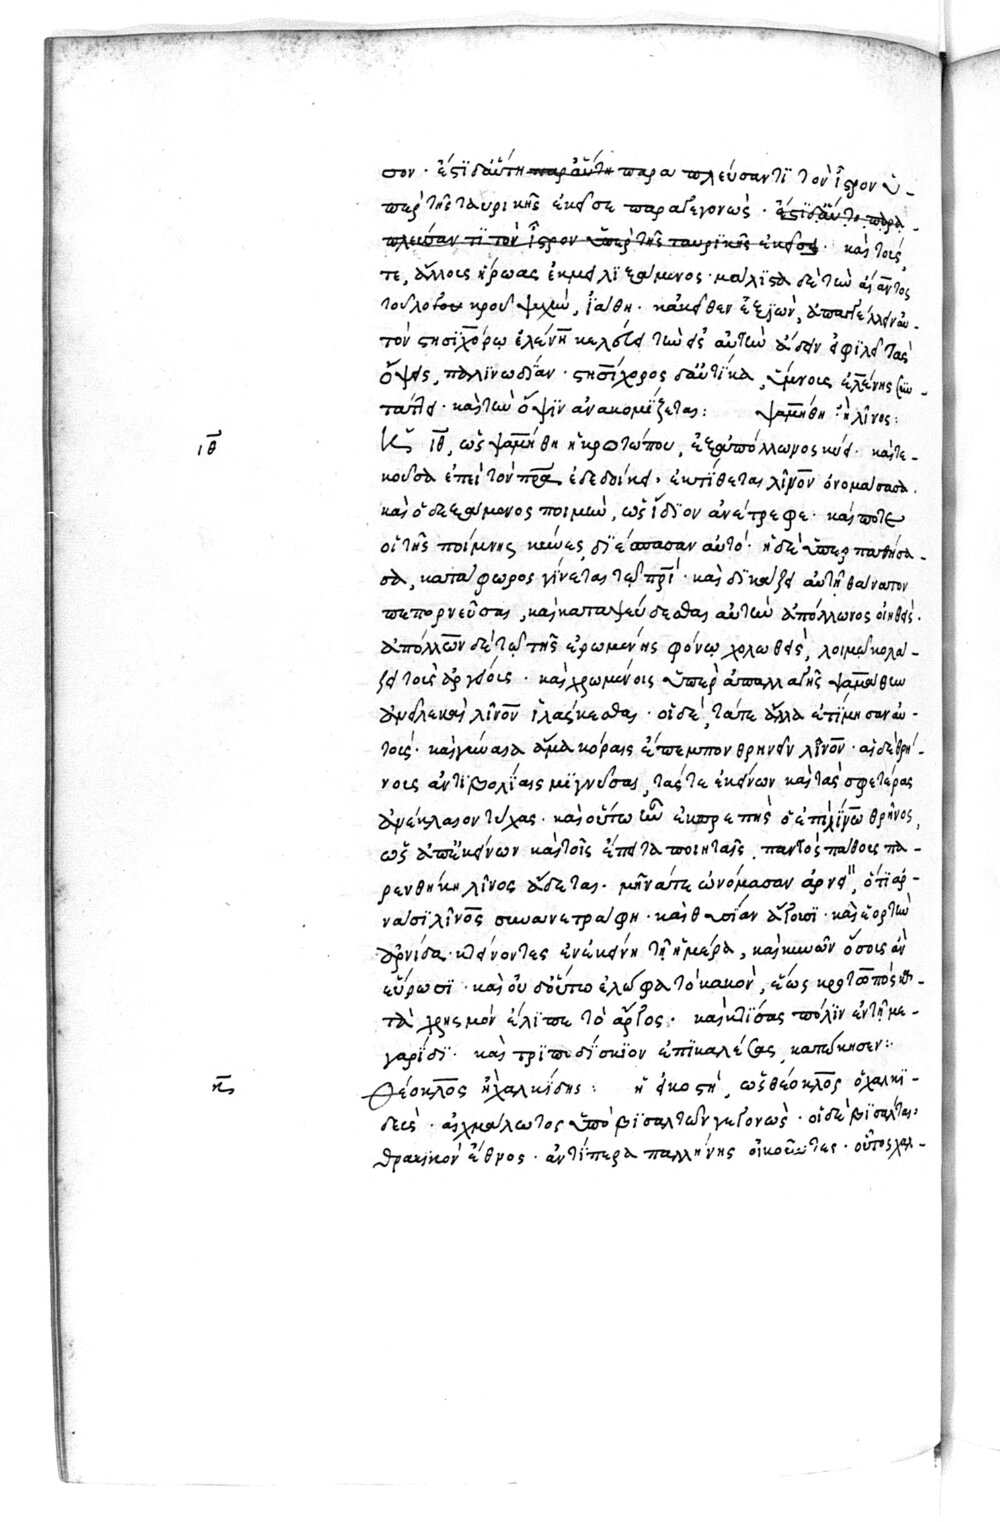 σον· ἔστι δ' αὕτη παρ αὕτη παρα πλεύσαντι τὸν ἴστρον ὑ-
πὲρ τῆς ταυρικῆς ἐκεῖσε παραγεγονὼς· ἔστι δ' αὕτη παρα
πλεύσαντι τὸν ἴστρον ὑπὲρ τῆς ταυρικῆς ἐκεῖσε· καὶ τοῖς
τε ἄλλοις ἥρωας ἐκμειλιξάμενος· μάλιστα δὲ τὴν αἴαντος
τοῦ λοκροῦ ψυχὴν, ἰάθη· κἀκεῖθεν ἐξιὼν, ἀπαγγέλλειν αὐ-
τὸν στησιχόρῳ ἑλένη κελεύει τὴν εἰς αὐτὴν ᾄδειν εἰ φιλεῖ τὰς
ὄψεις, παλινωδίαν· στησίχορος δ' αὐτίκα, ὕμνους ἑλένης συν-
τάττει· καὶ τὴν ὄψιν ἀνακομίζεται: ψαμάθη ἡ λίνος:
ιθ
ιθ, ὡς ψαμάθη ἡ κροτώπου, ἐξ ἀπόλλωνος κύει· καὶ τε-
κοῦσα ἐπεὶ τὸν πρα ἐδεδοίκει· ἐκτίθεται λῖνον ὀνομάσασα.
καὶ ὁ δεξάμενος ποιμὴν, ὡς ἴδιον ἀνέτρεφε· καὶ ποτε
οἱ τῆς ποίμνης κύνες διέσπασαν αὐτό· ἡ δὲ ὑπερπαθήσα-
σα, κατάφωρος γίνεται τῷ πρι· καὶ δικάζει αὐτῇ θάνατον
πεπορνεῦσθαι, καὶ καταψεύδεσθαι αὐτὴν ἀπόλλωνος οἰηθεὶς.
ἀπόλλων δὲ τῷ τῆς ἐρωμένης φόνῳ χολωθεὶς, λοιμῷ κολά-
ζει τοὺς ἀργείους· καὶ χρωμένοις ὑπὲρ ἀπαλλαγῆς ψαμάθην
ἀνεῖλε καὶ λῖνον ἱλάσκεσθαι· οἱ δὲ, τά τε ἄλλα ἐτίμησαν αὐ-
τοὺς· καὶ γύναια ἅμα κόραις ἔπεμπον θρηνεῖν λῖνον· αἱ δὲ θρή-
νοις ἀντιβολίαις μιγνῦσαι, τάς τε ἐκείνων καὶ τὰς σφετέρας
ἀνέκλαιον τύχας· καὶ οὕτω ἦν ἐκπρεπὴς ὁ ἐπὶ λίνῳ θρῆνος,
ὡς ἀπ' ἐκείνων καὶ τοῖς ἔπειτα ποιηταῖς, παντὸς πάθους πα-
ρενθήκη λῖνος ᾄδεται· μῆνά τε ὠνόμασαν ἀρνεῖ, ὅτι ἀρ-
νάσι λῖνος συνανετράφη· καὶ θυσίαν ἄγουσι· καὶ ἑορτὴν
ἀρνίδα· κτείνοντες ἐν ἐκείνῃ τῇ ἡμέρᾳ, καὶ κυνῶν ὅσους ἂν
εὕρωσι· καὶ οὐδ' οὕτω ἐλώφα τὸ κακὸν, ἕως κρότωπος κα-
τὰ χρησμὸν ἔλιπε τὸ ἄργος· καὶ κτίσας πόλιν ἐν τῇ με-
γαρίδι· καὶ τριποδίσκιον ἐπικαλέσας, κατώκησεν:
κ
θεοκλος ἡ χαλκίδης: ἡ εἰκοστὴ, ὡς θεόκλος ὁ χαλκι-
δεὺς· αἰχμάλωτος ὑπὸ βισαλτῶν γεγονὼς· οἱ δὲ βισάλται,
θρακικὸν ἔθνος· ἀντιπέρα παλλήνης οἰκοῦντες· οὗτος χαλ-